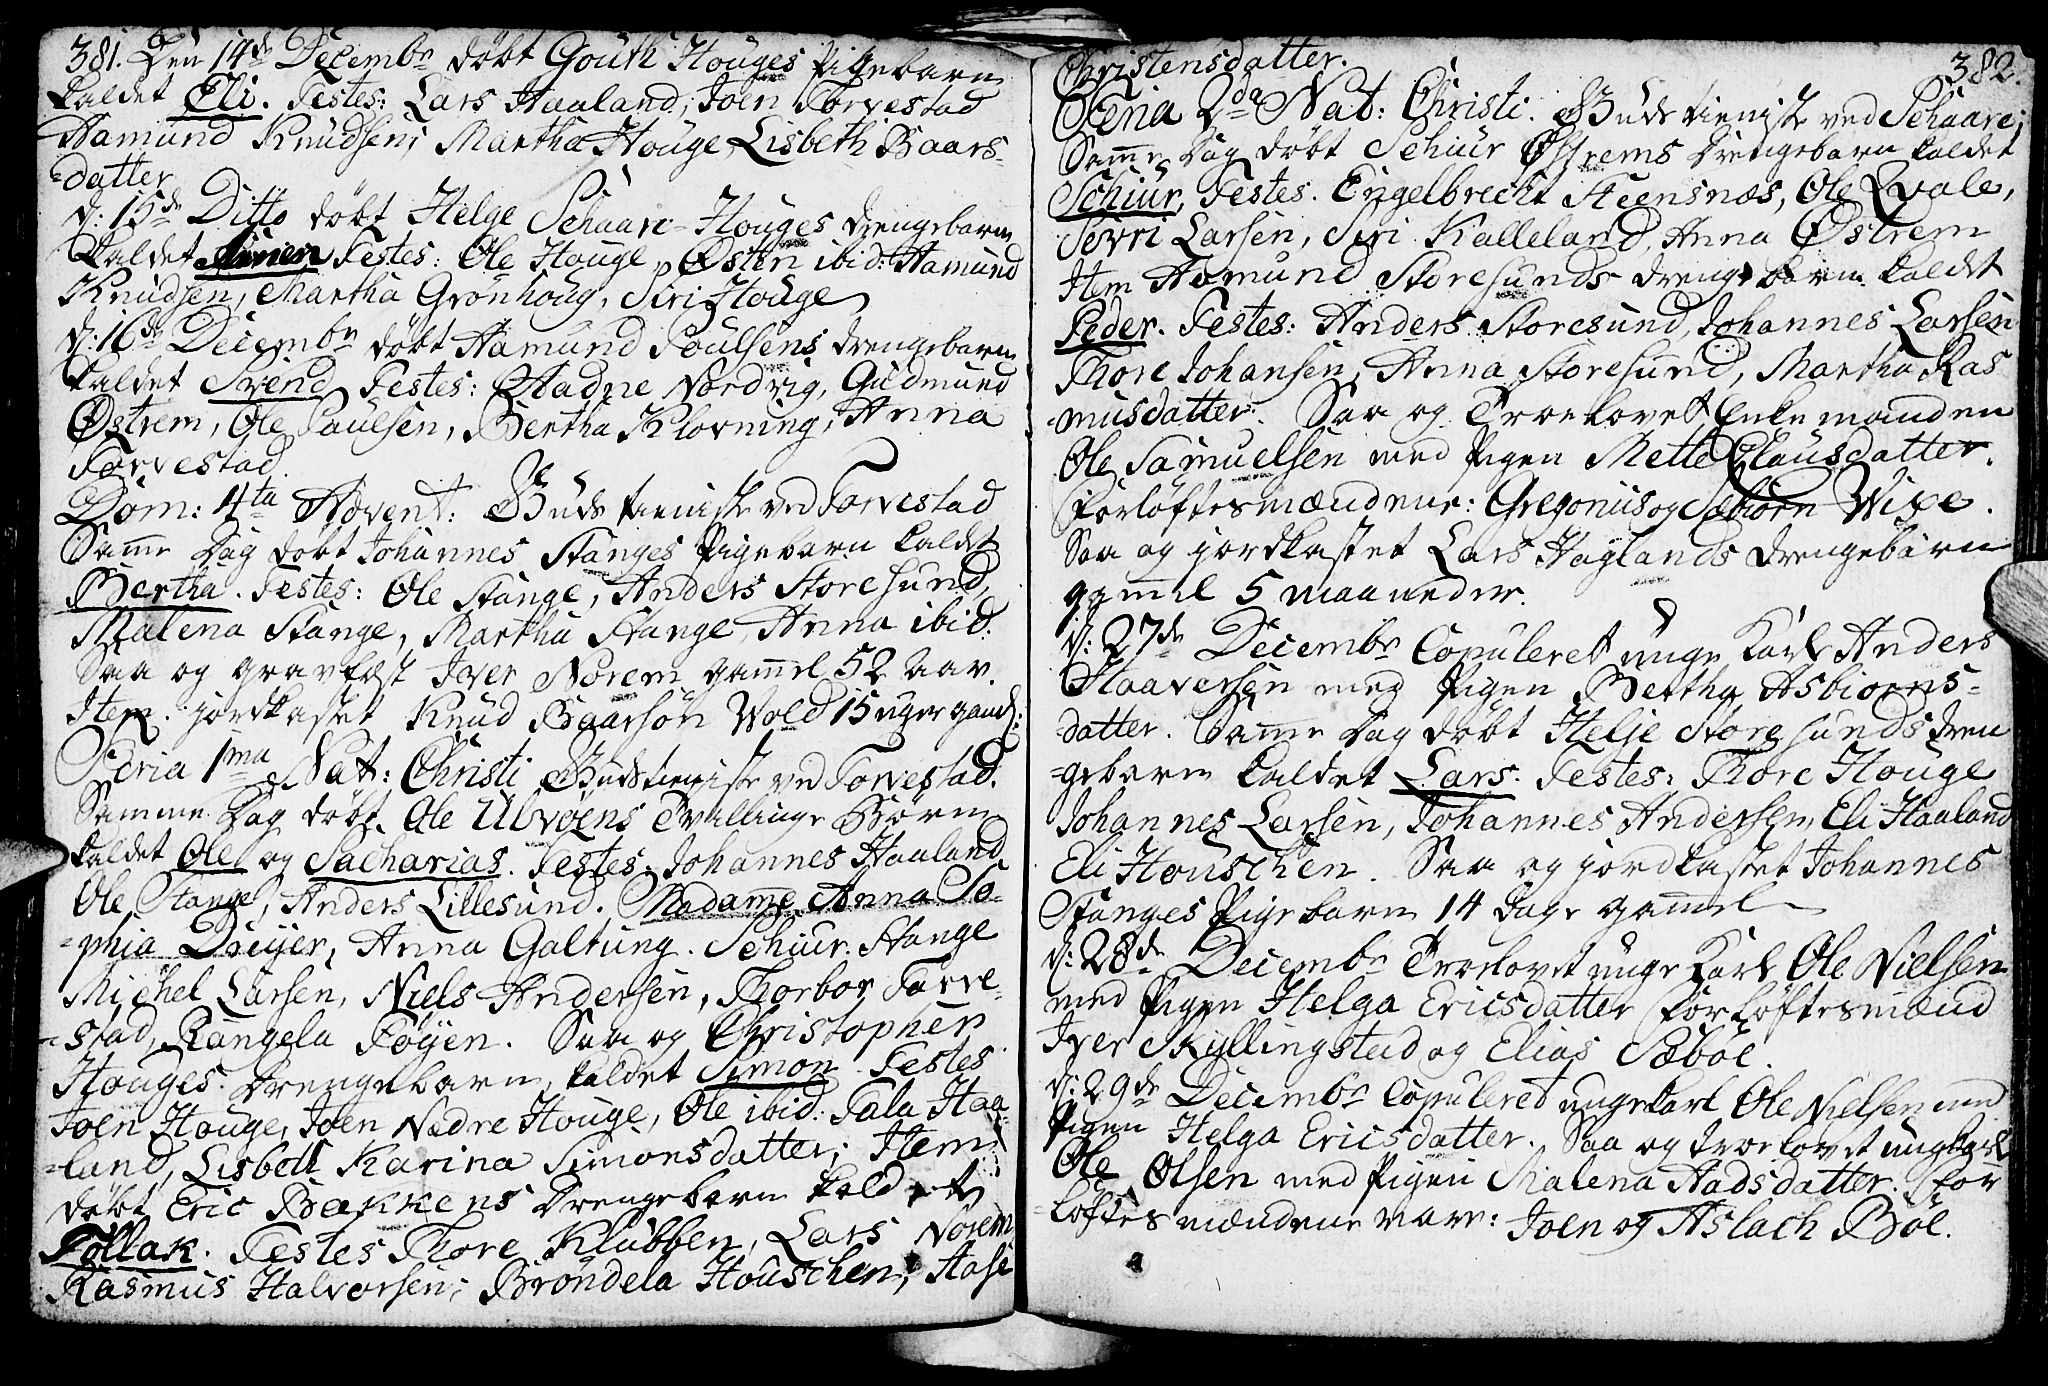 381. Den 14de Decembr döbt Gouth Houges Pigebarn
kaldet Eli. Testes: Lars Haaland, Joen Torvestad
Hamund Knudsen, Martha Houge, Lisbeth Baars-
-datter
d: 15de Ditto döbt Helge Schaare-Houges drengebarn
kaldet Simen Testes: Ole Houge, Østen ibid: Hamund
Knudsen, Martha Grönhoug, Siri Houge
d: 16de Decembr döbt Hamund Poulsens drengebarn
kaldet Svend Testes: Stadne Nordvig, Gudmund
Østrem, Ole Paulsen, Bertha Klovning, Anna
Torvestad.
Dom: 4ta Advent: Gudstieniste ved Torvestad
Same Dag döbt Johannes Stanges Pigebarn kaldet
Bertha. Testes: Ole Stange, Anders Storesund,
Malena Stange, Martha Stange, Anna ibid:
Saa og gravfæst Iver Norem gamel 52 aar.
Item jordkastet Knud Baarsøn Wold 15 uger gamel:
Feria 1ma Nat: Christi Gudstieniste ved Torvestad.
Samme Dag döbt Ole Ulvøens Tvillinge Börn
kaldet Ole og Sacharias. Testes Johannes Haaland
Ole Stange, Anders Lillesund. Madame Anna So-
-phia Dreyer, Anna Galtung. Schiur Stange
Michel Larsen, Niels Andersen, Thorbor Torve-
-stad, Rangela Føyen. Saa og Christopher
Houges Drengebarn, kaldet Simon Testes
Joen Houge, Joen Nedre Houge, Ole ibid: Tala Haa-
-land, Lisbeth Karina Simonsdatter; Item
döbt Eric Bækkens Drengebarn kaldet
Tollak. Testes Thore Klubben, Lars Norem
Rasmus Halvorsen; Bröndela Houschen, Aase
Christensdatter. 382.
Feria 2da Nat: Christi. Gudstieniste ved Schaare;
Same Dag döbt Schiur Østrems Drengebarn kaldet
Schiur, Testes. Engelbrecht Steensnæs, Ole Qvale,
Sevri Larsen, Siri Kalleland, Anna Østrem
Item Hamund Storesunds drengebarn kaldet
Peder. Testes: Anders Storesund, Johannes Larsen
Thore Johansen, Anna Storesund, Martha Ras
-musdatter. Saa og Troelovet Enkemanden
Ole Samuelsen med Pigen Mette Clausdatter.
Forløftesmændene: Gregorius og Sæbiörn Wixe.
Saa og jordkastet Lars Høylands drengebarn
gamel 5 maaneder.
d: 27de Decembr Copuleret unge Karl Anders
Haaversen med Pigen Bertha Asbiörns-
-datter. Same Dag döbt Helje Storesunds dren
-gebarn kaldet Lars. Testes: Thore Houge
Johannes Larsen, Johannes Andersen, Eli Haaland
Eli Houschen. Saa og jordkastet Johannes
Stanges Pigebarn 14 Dage gamel
d: 28de Decembr Troelovet unge Karl Ole Nielsen
med Pigen Helga Ericsdatter Forløftesmænd
Iver Skyllingstad og Elias Sæböe.
d: 29de Decembr Copuleret unge Karl Ole Nielsen med
Pigen Helga Ericsdatter. Saa og troelovet ungkarl
Ole Olsen med Pigen Malena Aadsdatter. For
-løftesmændene vare: Joen og Aslach Böe.